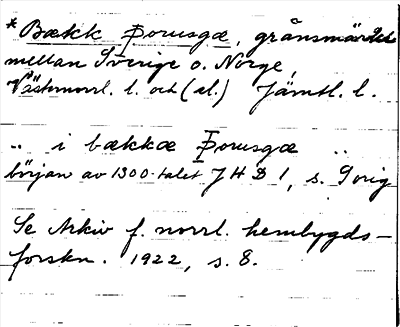 * Bækk Þorusgæ, gränsmärke
mellan Sverige o. Norge,
Västernorrl. l. och (al.) Jämtl. l.
" i bækkæ Þorusgæ "
början av 1300-talet JHD 1, s. 9 orig
Se Arkiv f. norrl. hembygds-
forskn. 1922, s. 8.